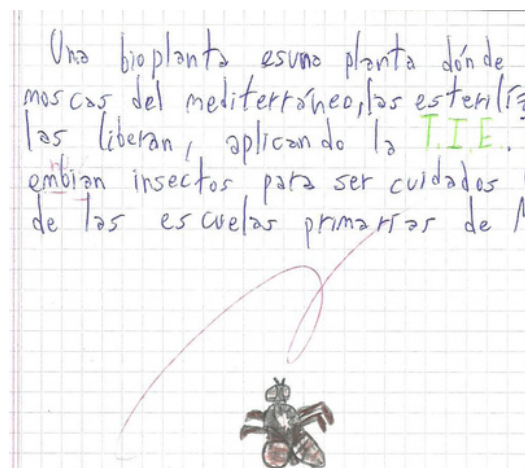 Una bioplanta esuna planta dónde
moscas del mediterráneo, las esterili
las liberan, aplicando la T.I.E.
embian insectos para ser cuidados
de las escuelas primarias de